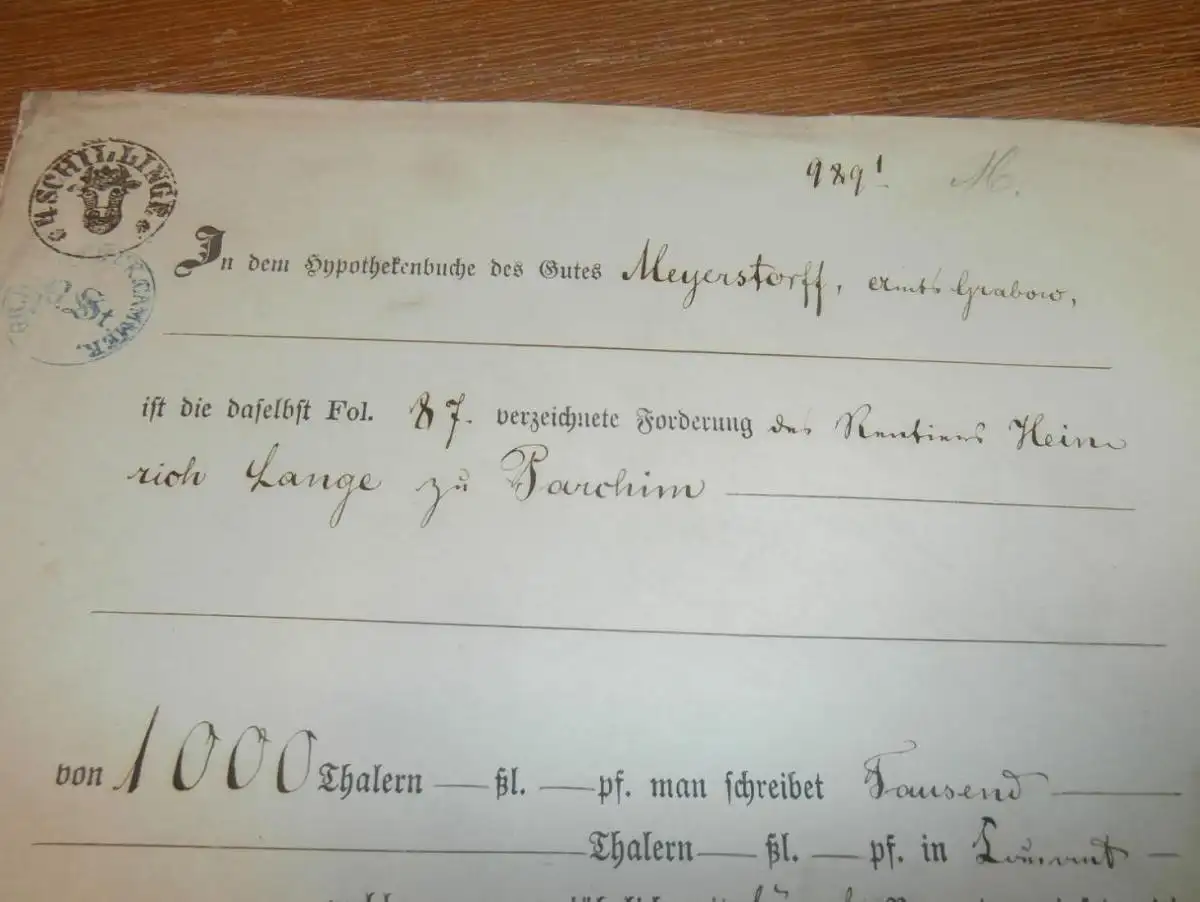 4 SCHILLINGE
989¹ M.
In dem Hypothekenbuche des Gutes Meyerstorff, Amts Grabow,
KAMMER.
St.
ist die daselbst Fol. 87. verzeichnete Forderung des Rentiers Hein
rich Lange zu Parchim
von 1000 Thalern — ßl. — pf. man schreibet Tausend
Thalern — ßl. — pf. in Courant —